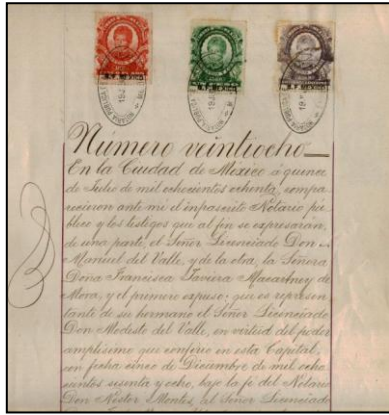 Número veintiocho
En la Ciudad de México á quince
de Julio de mil ochocientos ochenta, compa
recieron ante mi el infrascrito Notario pú
blico y los testigos que al fin se expresarán,
de una parte, el Señor Licenciado Don
Manuel del Valle, y de la otra, la Señora
Doña Francisca Javiera Macartney de
Mora, y el primero expuso: que es represen
tante de su hermano el Señor Licenciado
Don Modesto del Valle, en virtud del poder
amplísimo que confirió en esta Capital,
con fecha cinco de Diciembre de mil ocho
cientos sesenta y ocho, bajo la fé del Notario
Don Néstor Montes, el Señor Licenciado